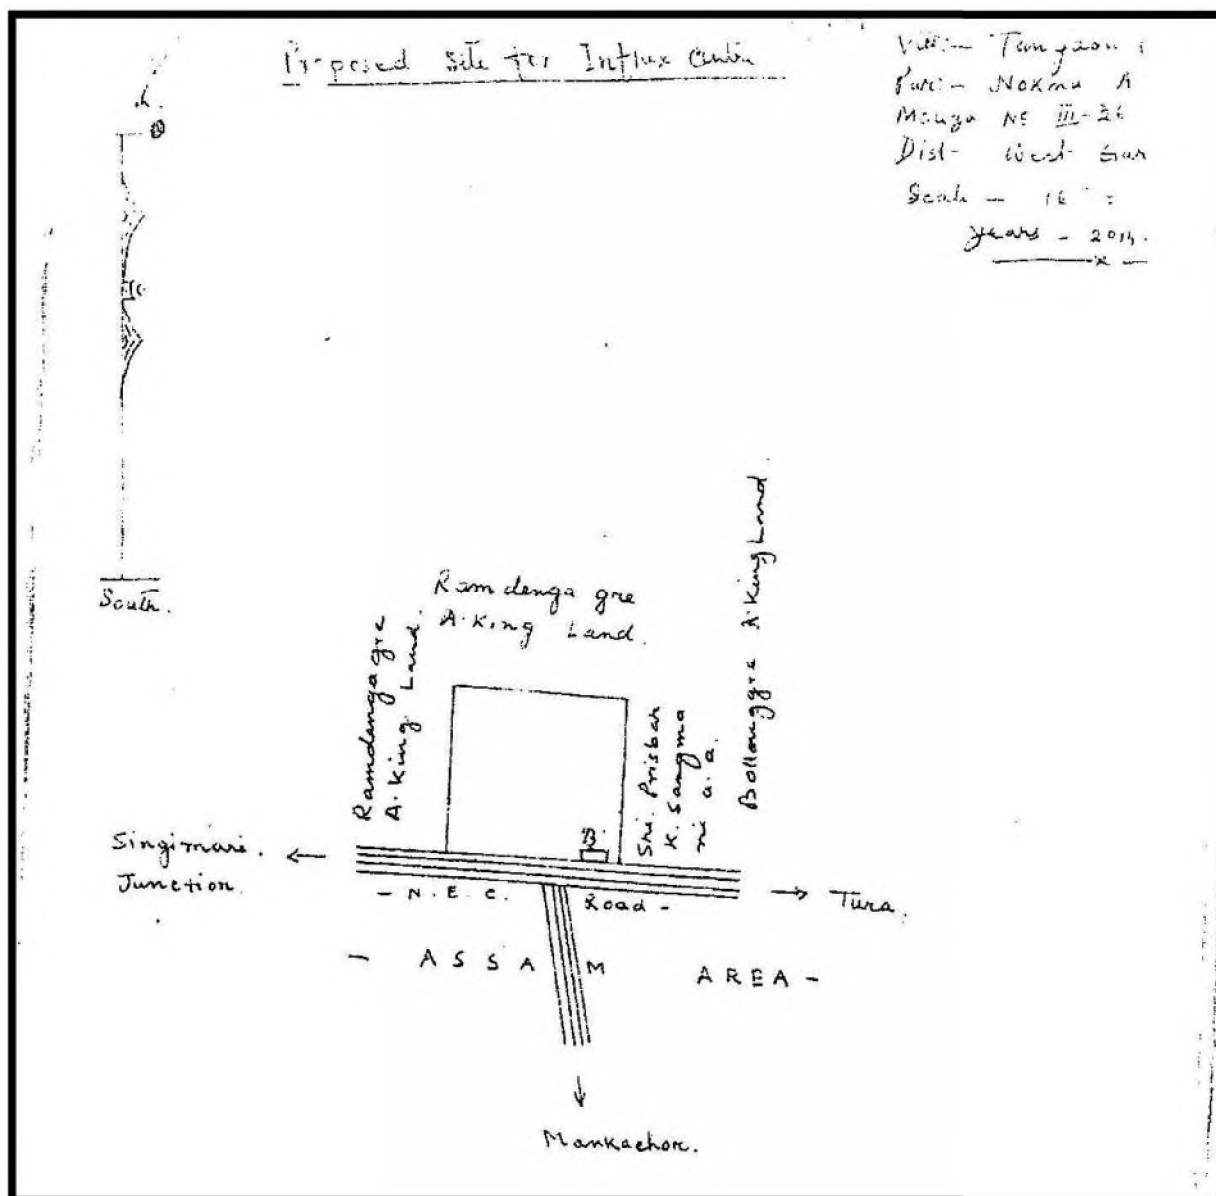 Proposed Site for Influx Centre
Vill:- Tangaon
Part:- Nokma A
Mouza No III-26
Dist- West Gar
Scale - 16" =
years -
South.
Ramdenga gre
A.King Land.
Ramdengagre
A.King Land.
Sri. Prisbar
K. Sangma
ni a.a.
Bollonggre A.King Land
B.
Singimari.
Junction.
- N.E.C. Road -
Tura.
- ASSAM AREA -
Mankachor.